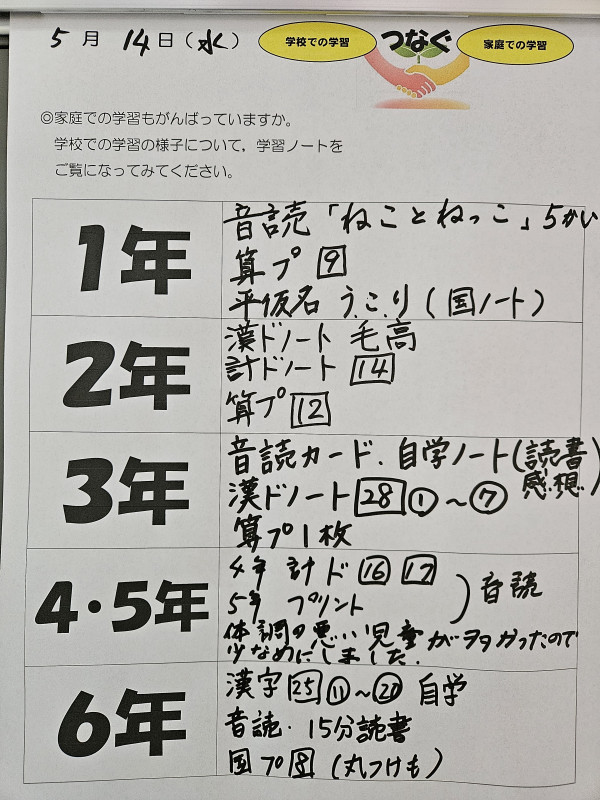 5月14日(水)
学校での学習 つなぐ 家庭での学習
◎家庭での学習もがんばっていますか。
学校での学習の様子について,学習ノートを
ご覧になってみてください。
1年
音読「ねことねっこ」5かい
算プ 9
平仮名 う.こ.り(国ノート)
2年
漢ドノート 毛高
計ドノート 14
算プ 12
3年
音読カード.自学ノート(読書感想)
漢ドノート 28 ①~⑦
算プ1枚
4・5年
4年 計ド 16 17
5年 プリント
音読
体調の悪い児童が多かったので
少なめにしました.
6年
漢字 25 ⑪~⑳ 自学
音読・15分読書
国プ 8 (丸つけも)